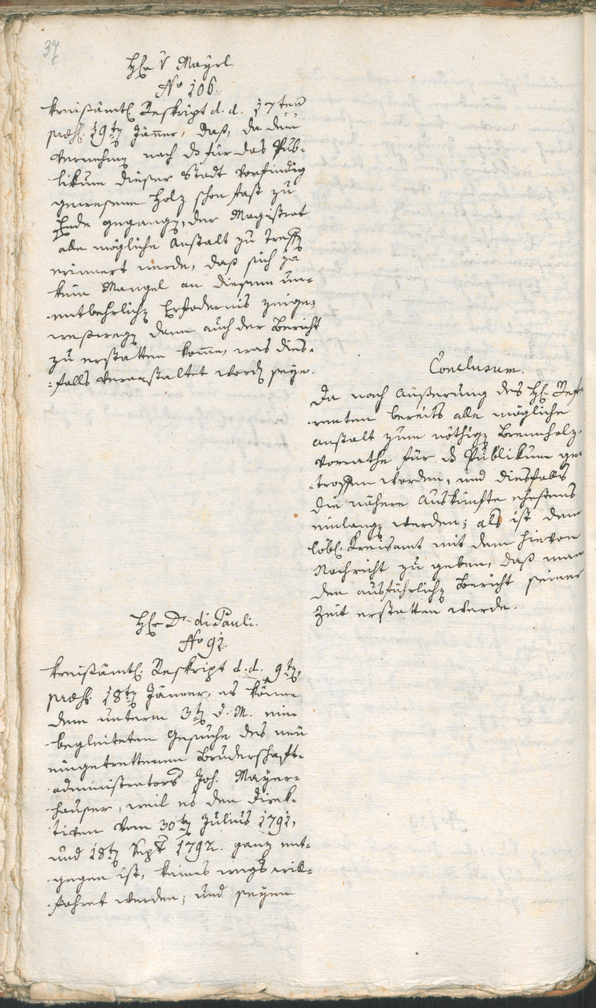 37
Hℓ. v Mayrl.
No 106.
Kreisämtl. Reskript d. d. 17ten
præs. 19ten Jänner, daß, da dem
Vernehmen nach ds für das Pub-
likum dieser Stadt vorfindig
gewesene Holz schon fast zu
Ende gegangen, der Magistrat
alle mögliche Anstalt zu treffen
erinnert werde, daß sich ja
kein Mangel an diesem un-
entbehrlichen Erfordernis zeige,
weßwegen dann auch der Bericht
zu erstatten komme, was dies-
falls veranstaltet worden seye.
Conclusum.
Da nach Äußerung des Hℓ. Refe-
renten bereits alle mögliche
Anstalt zum nöthigen Brennholz-
vorrathe für ds Publikum ge-
troffen worden, und diesfalls
die nähere Auskünfte ehestens
einlangen werden; als ist dem
löbl. Kreisamt mit dem hievon
Nachricht zu geben, daß man
den ausführlichen Bericht seiner
Zeit erstatten werde.
Hℓ. Dr. di Pauli.
No 92.
Kreisämtl. Reskript d. d. 9ten,
præs. 18ten Jänner, es könne
dem unterm 3ten d. M. ein-
begleiteten Gesuche des neu
eingetrettenen Bruderschaft-
administrators Joh. Mayer-
hauser, weil es den Direk-
tiven vom 30ten Julius 1791,
und 18ten Sept 1792. ganz ent-
gegen ist, keines wegs will-
fahret werden, und seyen